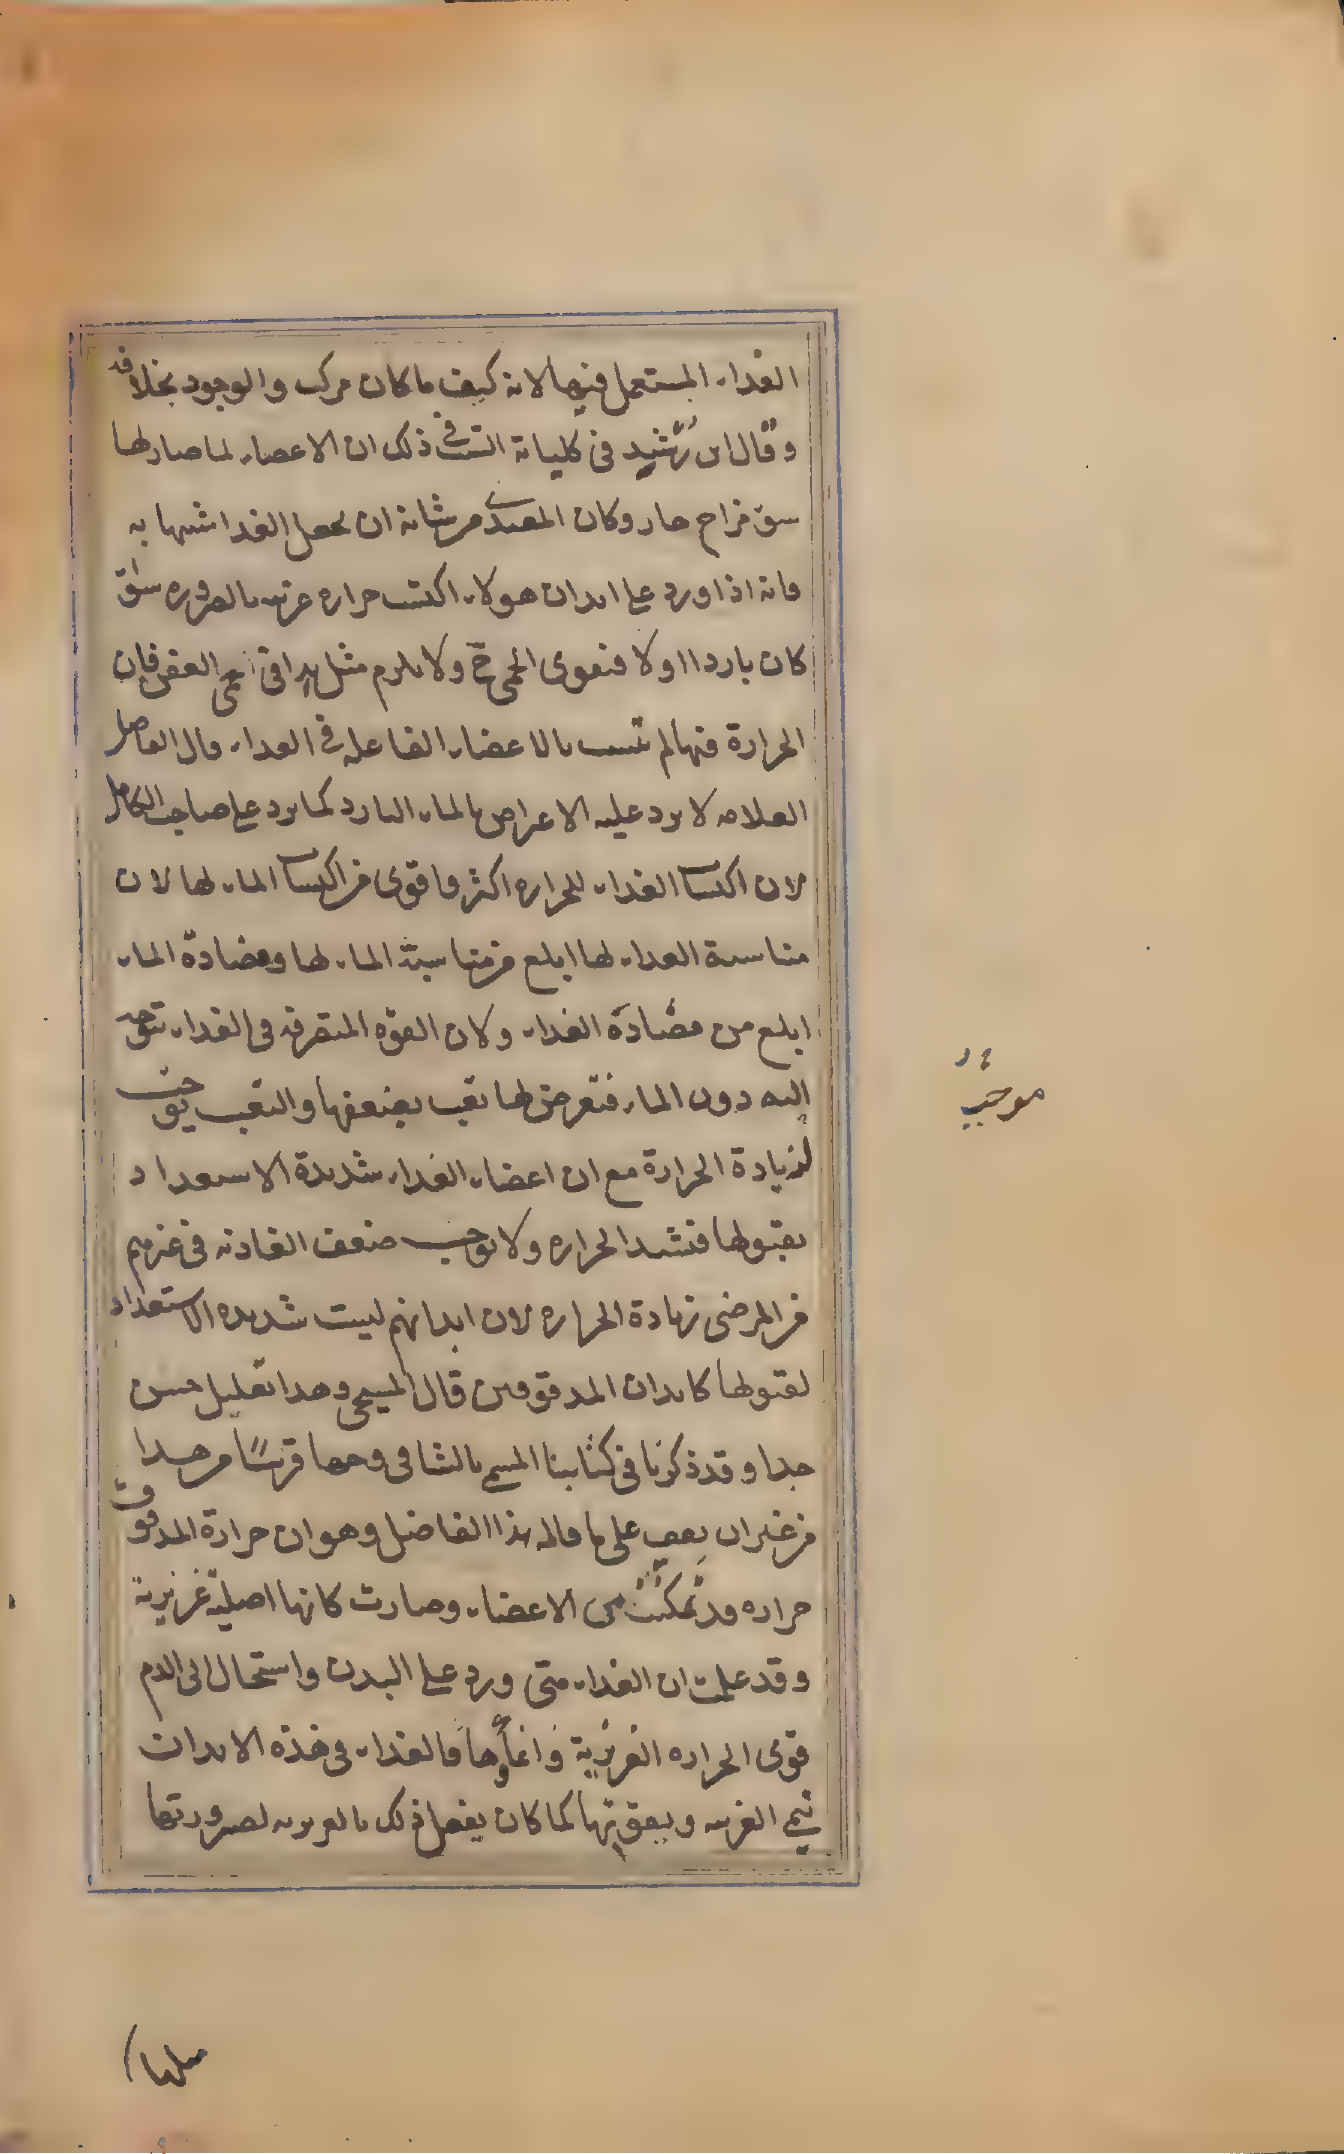 الغذاء المستعمل فيها لانه كيف ما كان مركب والوجود بخلافه
وقال ابن رشيد فى كلياته السبب فى ذلك ان الاعضاء لما صار لها
سوء مزاج حار وكان المغتدى من شانه ان يجعل الغدا شبيها به
فانه اذا ورد على ابدان هولاء اكتسب حراره غريبه بالضروره سواء
كان باردا اولا فتقوى الحمى ح ولا يلزم مثل هذا فى حمى العفن فان
الحرارة فيها لم تتشبث بالاعضاء الفاعله فى الغداء قال الفاضل
العلامه لا يرد عليه الاعراض بالماء البارد كما يرد على صاحب الكامل
لان اكتساب الغداء للحراره اكثر واقوى من اكتساب الماء لها لان
مناسبة الغداء لها ابلغ من مناسبة الماء لها ومضادة الماء
ابلغ من مضادة الغداء ولان القوه المتصرفه فى الغداء تتوجه
اليه دون الماء فتعرض لها تعب يضعفها والتعب يوجب
لزيادة الحرارة مع ان اعضاء الغداء شديدة الاستعداد
بقبولها فتشتد الحراره ولا يوجب ضعف الغاذيه فى غيرهم
من المرضى زيادة الحراره لان ابدانهم ليست شديده الاستعداد
لقبولها كابدان المدقوقين قال المسيحى وهذا تعليل حسن
جدا وقد ذكرنا فى كتابنا المسمى بالشافى وجها قريبًا من هذا
من غير ان نقف على ما قاله هذا الفاضل وهو ان حرارة المدقوق
حراره قد تمكنت من الاعضاء وصارت كانها اصلية غريزية
وقد علمت ان الغداء متى ورد على البدن واستحال الى الدم
قوى الحراره الغريزية وانماها فالغداء فى هذه الابدان
ينمى الغريبه ويقويها كما كان يفعل ذلك بالغريزيه لصيرورتها
موجب
مثلها